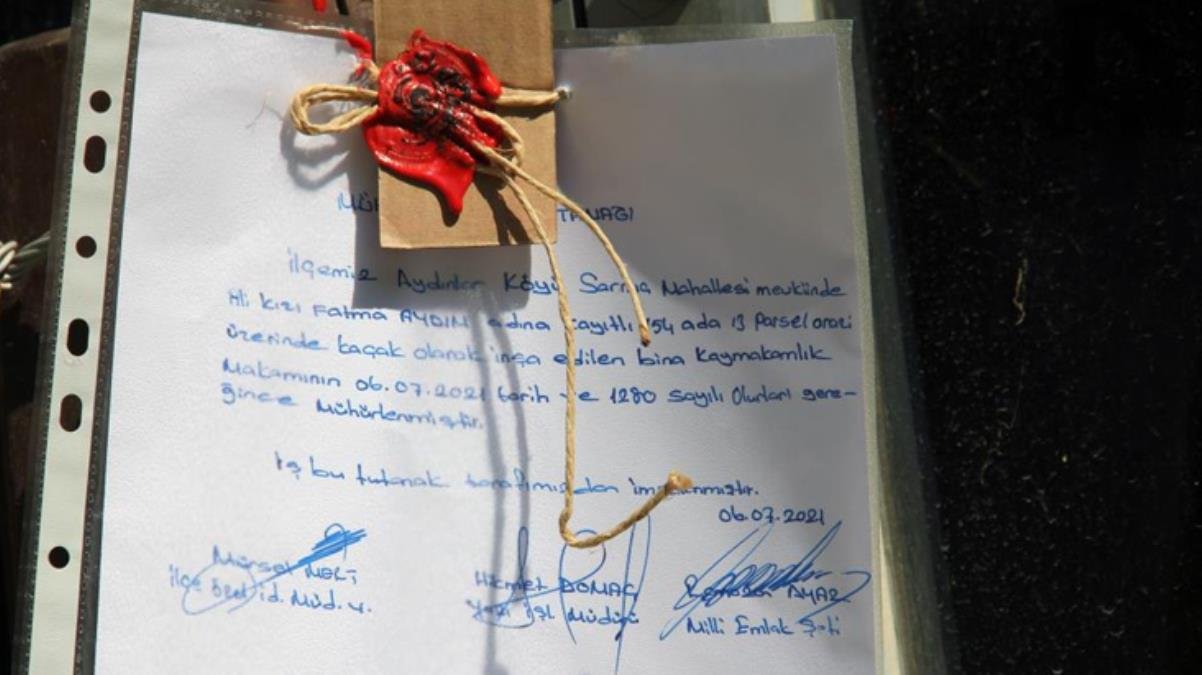 MÜ TANAĞI
İlçemiz Aydınlar Köyü Sarma Mahallesi mevkiinde
Ali kızı Fatma AYDIN adına kayıtlı 154 ada 13 Parsel arazi
üzerinde kaçak olarak inşa edilen bina Kaymakamlık
Makamının 06.07.2021 tarih ve 1280 sayılı Olurları gere-
ğince Mühürlenmiştir.
İş bu tutanak tarafımızdan imzalanmıştır.
06.07.2021
Mürsel MERT Hikmet DOMAÇ Ramazan AYAZ
İlçe özel id. Müd. V. Yazı İşl. Müdürü Milli Emlak Şefi